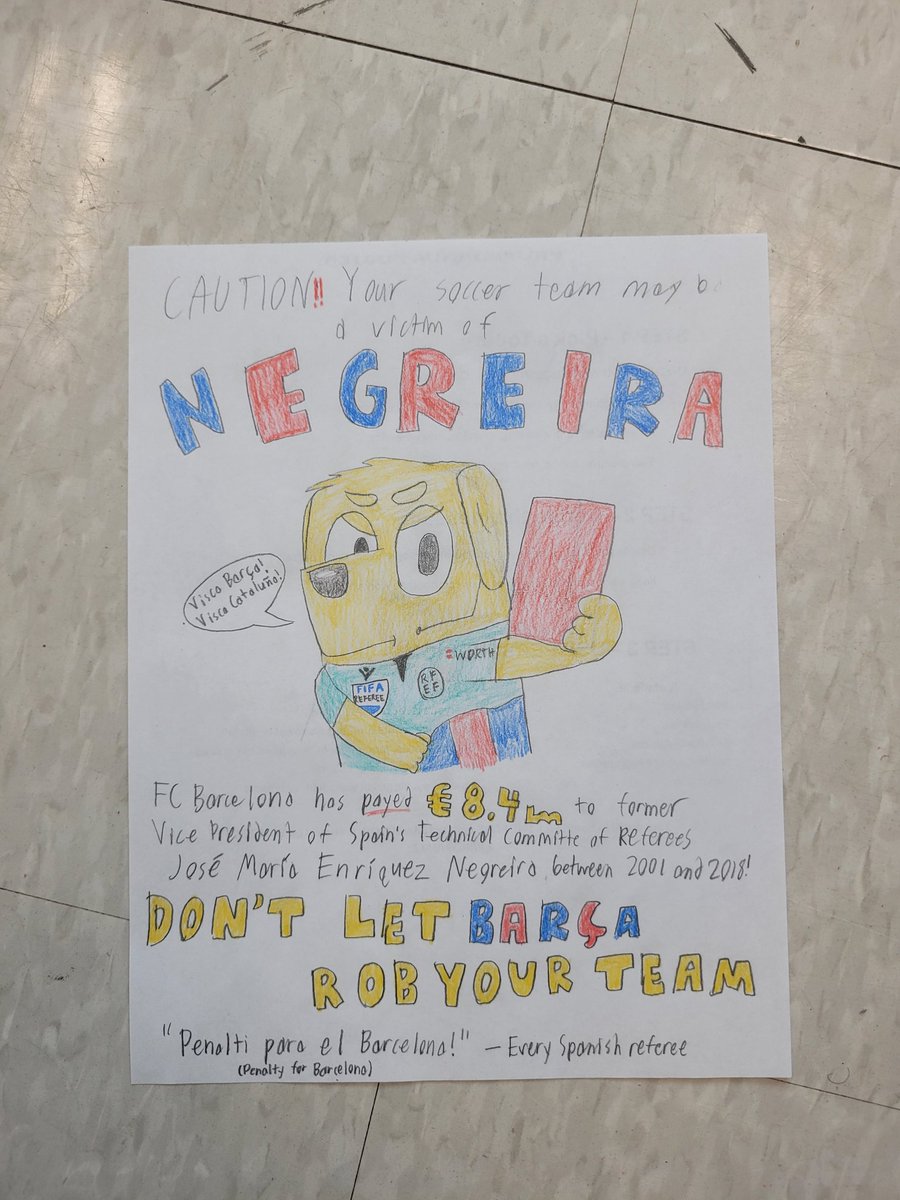 CAUTION!! Your soccer team may be
a victim of
NEGREIRA
Visca Barça!
Visca Cataluña!
WORTH
FIFA
REFEREE
RF
EF
FC Barcelona has payed €8.4m to former
Vice President of Spain's Technical Committe of Referees
José María Enríquez Negreira between 2001 and 2018!
DON'T LET BARÇA
ROB YOUR TEAM
"Penalti para el Barcelona!" – Every Spanish referee
(Penalty for Barcelona)